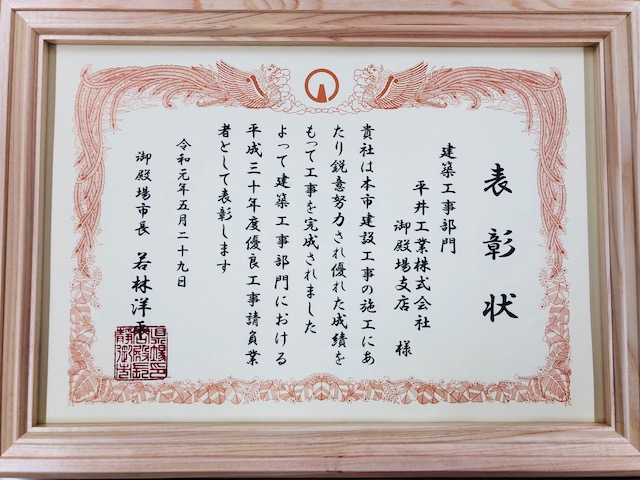 表彰状
建築工事部門
平井工業株式会社
御殿場支店 様
貴社は本市建設工事の施工にあ
たり鋭意努力され優れた成績を
もって工事を完成されました
よって建築工事部門における
平成三十年度優良工事請負業
者として表彰します
令和元年五月二十九日
御殿場市長 若林洋平